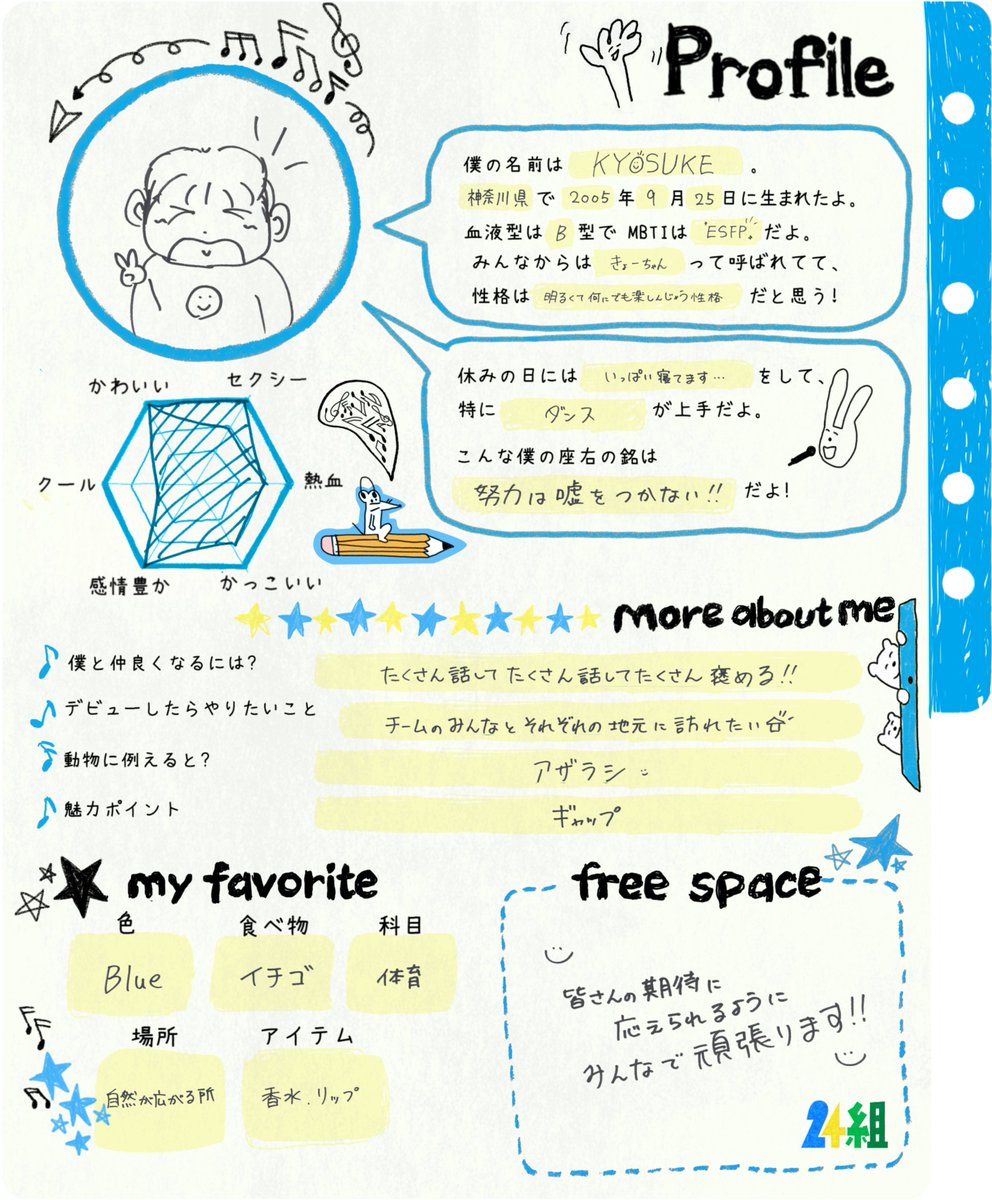 Profile
僕の名前は KYOSUKE 。
神奈川県 で 2005 年 9 月 25 日に生まれたよ。
血液型は B 型で MBTIは ESFP だよ。
みんなからは きょーちゃん って呼ばれてて、
性格は 明るくて何にでも楽しんじょう性格 だと思う!
休みの日には いっぱい寝てます… をして、
特に ダンス が上手だよ。
こんな僕の座右の銘は
努力は嘘をつかない!! だよ!
かわいい セクシー
クール 熱血
感情豊か かっこいい
more about me
僕と仲良くなるには? たくさん話してたくさん話してたくさん褒める!!
デビューしたらやりたいこと チームのみんなとそれぞれの地元に訪れたい
動物に例えると? アザラシ
魅力ポイント ギャップ
my favorite
色 食べ物 科目
Blue イチゴ 体育
場所 アイテム
自然が広がる所 香水.リップ
free space
皆さんの期待に
応えられるように
みんなで頑張ります!!
24組